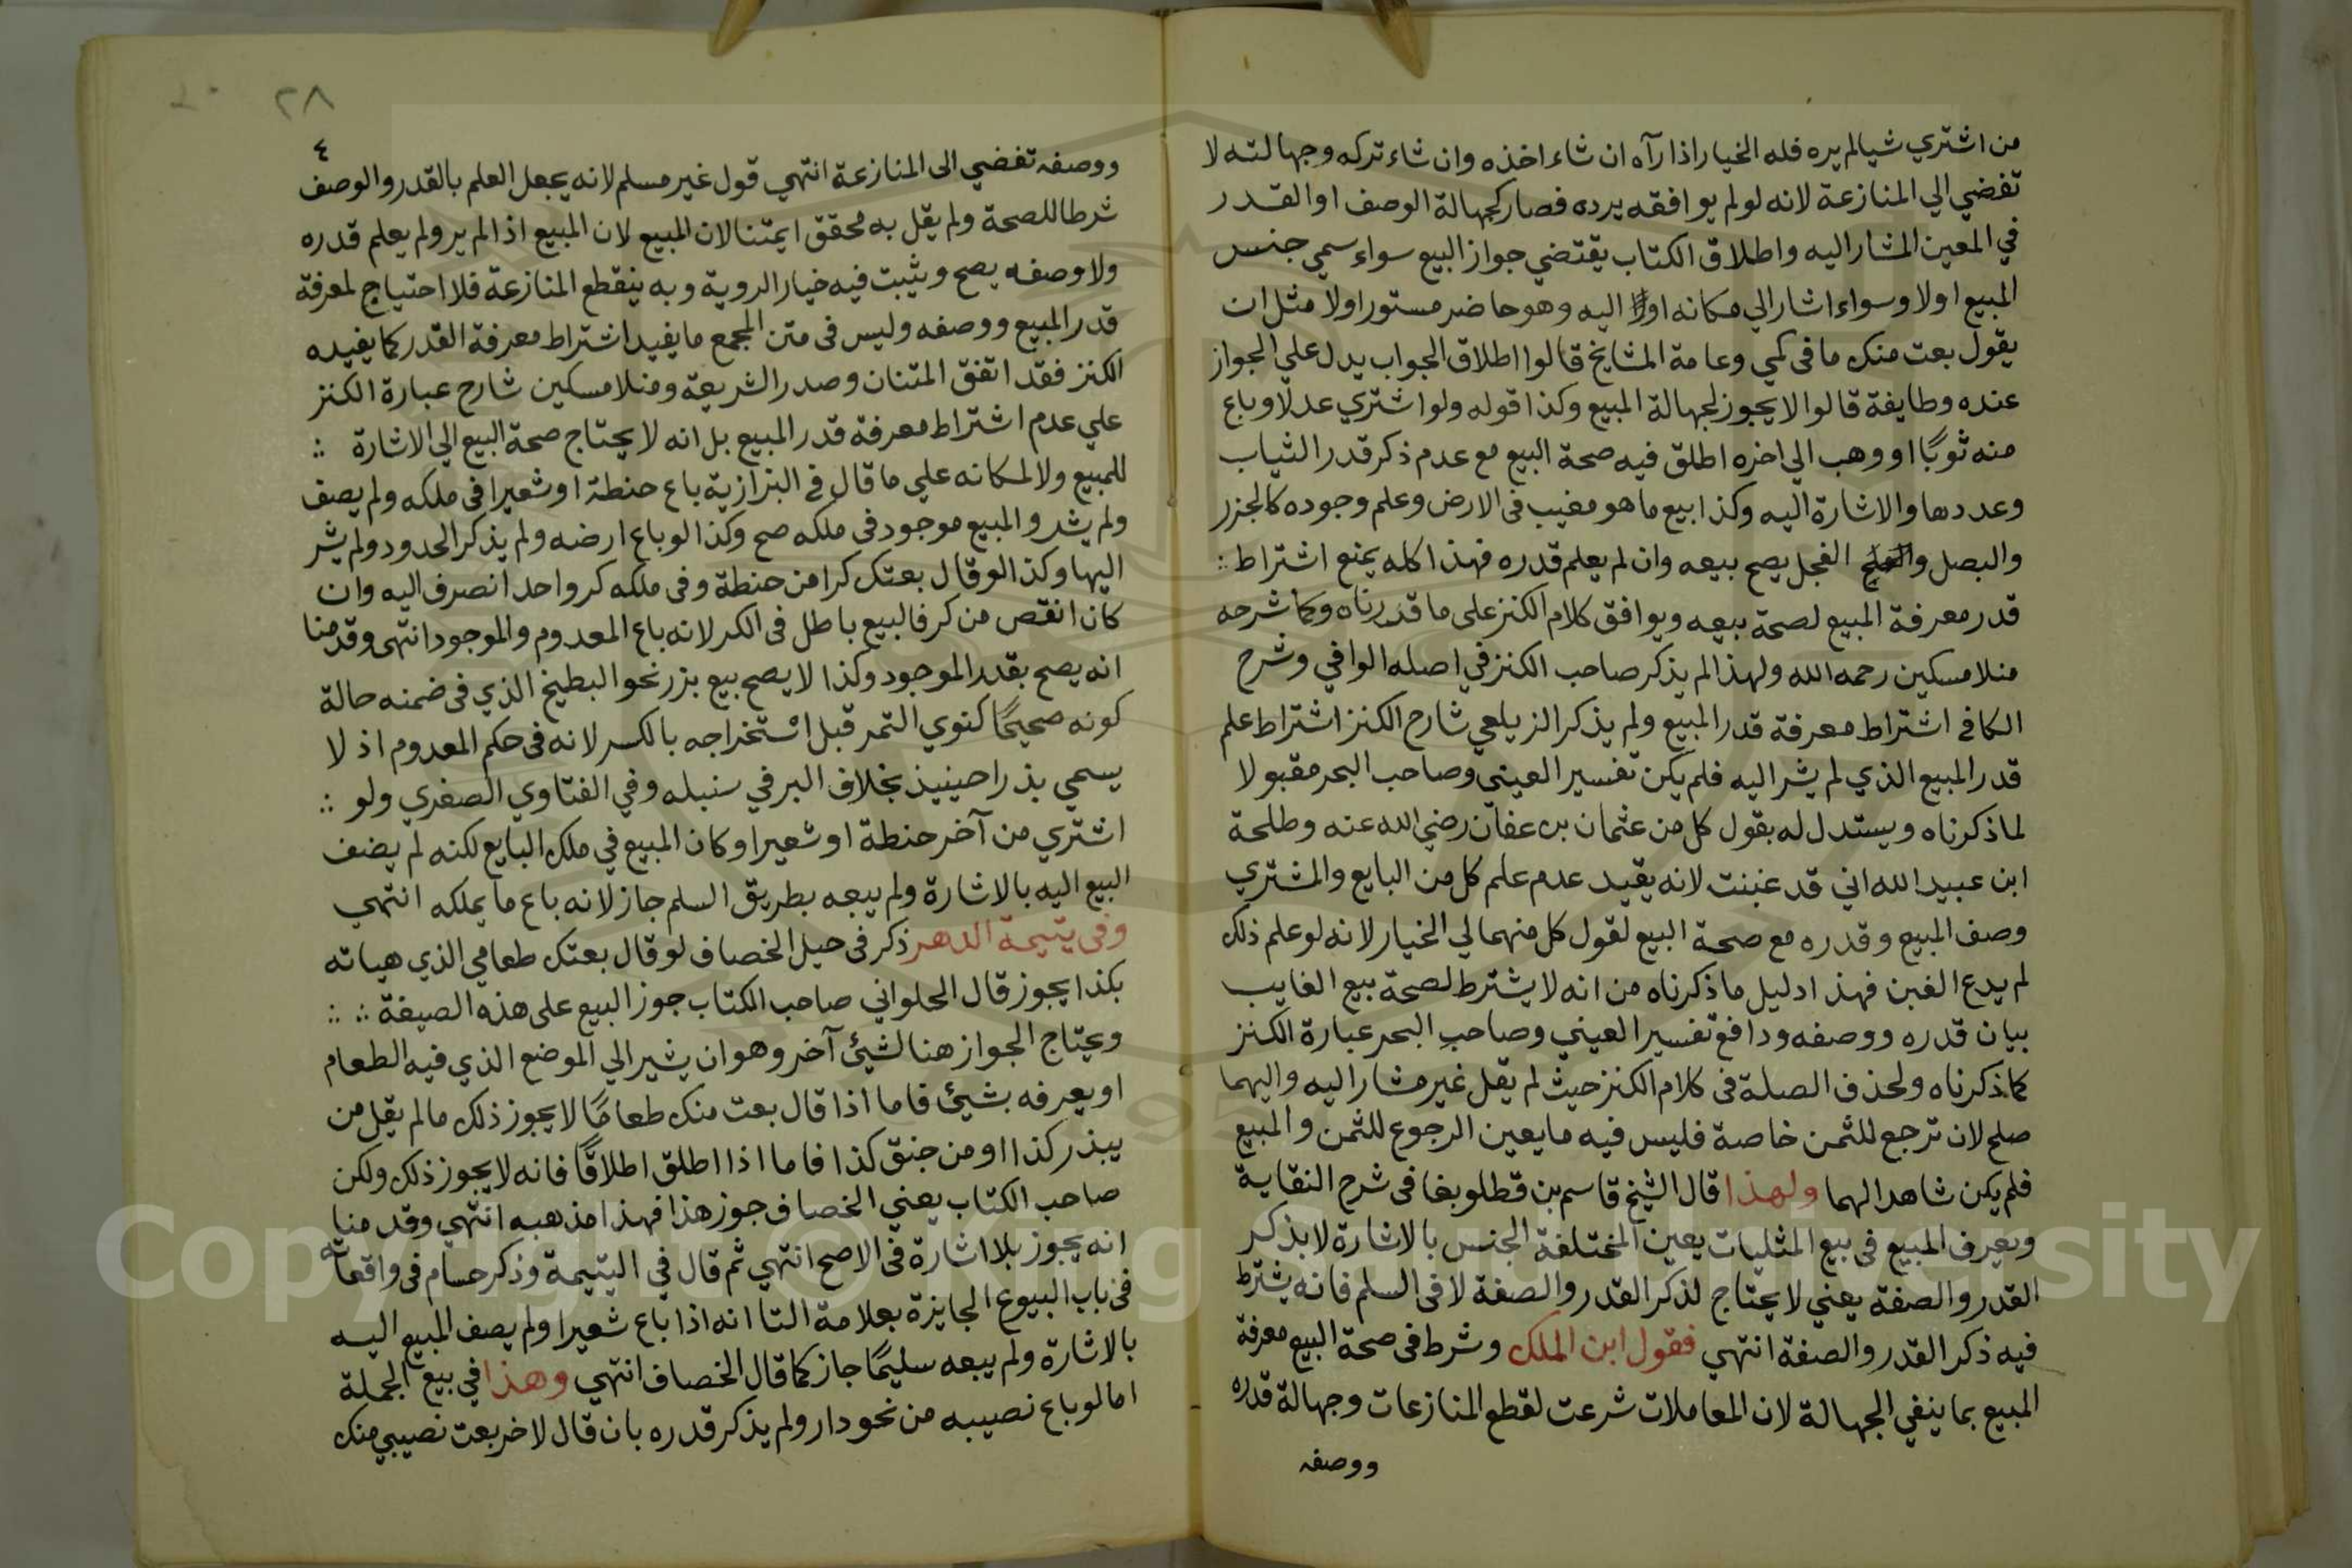 من اشتري شيالم يره فله الخيار اذا رآه ان شاء اخذه وان شاء تركه وجهالته لا
تفضي الي المنازعة لانه لو لم يوافقه يرده فصار كجهالة الوصف او القدر
في المعين المشار اليه واطلاق الكتاب يقتضي جواز البيع سواء سمي جنس
المبيع اولا وسواء اشار الي مكانه او اليه وهو حاضر مستور اولا مثل ان
يقول بعت منك ما فى كمي وعامة المشايخ قالوا اطلاق الجواب يدل علي الجواز
عنده وطايفة قالوا لا يجوز لجهالة المبيع وكذا قوله ولو اشتري عدلا وباع
منه ثوبًا او وهب الي اخره اطلق فيه صحة البيع مع عدم ذكر قدر الثياب
وعددها والاشارة اليه وكذا بيع ما هو مغيب فى الارض وعلم وجوده كالجزر
والبصل و الفجل يصح بيعه وان لم يعلم قدره فهذا كله يمنع اشتراط
قدر معرفة المبيع لصحة بيعه ويوافق كلام الكنز على ما قدرناه وكما شرحه
منلا مسكين رحمه الله ولهذا لم يذكر صاحب الكنز في اصله الوافي وشرح
الكافى اشتراط معرفة قدر المبيع ولم يذكر الزيلعي شارح الكنز اشتراط علم
قدر المبيع الذي لم يشر اليه فلم يكن تفسير العينى وصاحب البحر مقبولا
لما ذكرناه ويستدل له بقول كل من عثمان بن عفان رضي الله عنه وطلحة
ابن عبيد الله اني قد غبنت لانه يقيد عدم علم كل من البايع والمشتري
وصف المبيع وقدره مع صحة البيع لقول كل منهما لي الخيار لانه لو علم ذلك
لم يدع الغبن فهذا دليل ما ذكرناه من انه لا يشترط لصحة بيع الغايب
بيان قدره ووصفه ودافع تفسير العيني وصاحب البحر عبارة الكنز
كما ذكرناه ولحذف الصلة فى كلام الكنز حيث لم يقل غير مشار اليه واليهما
صلح لان ترجع للثمن خاصة فليس فيه ما يعين الرجوع للثمن والمبيع
فلم يكن شاهدا لهما ولهذا قال الشيخ قاسم بن قطلوبغا فى شرح النقاية
ويعرف المبيع فى بيع المثليات يعين المختلفة الجنس بالاشارة لا بذكر
القدر والصفة يعني لا يحتاج لذكر القدر والصفة لا فى السلم فانه يشترط
فيه ذكر القدر والصفة انتهي فقول ابن الملك وشرط فى صحة البيع معرفة
المبيع بما ينفي الجهالة لان المعاملات شرعت لقطع المنازعات وجهالة قدره
ووصفه
٢٨
٤
ووصفه تفضي الى المنازعة انتهي قول غير مسلم لانه يجعل العلم بالقدر والوصف
شرطا للصحة ولم يقل به محقق ايمتنا لان المبيع لان المبيع اذا لم ير ولم يعلم قدره
ولا وصفه يصح ويثبت فيه خيار الروية وبه ينقطع المنازعة فلا احتياج لمعرفة
قدر المبيع ووصفه وليس فى متن المجمع ما يفيد اشتراط معرفة القدر كما يفيده
الكنز فقد اتفق المتنان وصدر الشريعة ومنلا مسكين شارح عبارة الكنز
علي عدم اشتراط معرفة قدر المبيع بل انه لا يحتاج صحة البيع الي الاشارة
للمبيع ولا لمكانه علي ما قال في البزازية باع حنطة او شعيرا فى ملكه ولم يصف
ولم يشر والمبيع موجود فى ملكه صح وكذا لو باع ارضه ولم يذكر الحدود ولم يشر
اليها وكذا لو قال بعتك كرا من حنطة وفى ملكه كر واحد انصرف اليه وان
كان انقص من كر فالبيع باطل فى الكر لانه باع المعدوم والموجود انتهى وقدمنا
انه يصح بقدر الموجود وكذا لا يصح بيع بزر نحو البطيخ الذي فى ضمنه حالة
كونه صحيحًا كنوي التمر قبل استخراجه بالكسر لانه فى حكم المعدوم اذ لا
يسمي بذرا حينيذ بخلاف البر في سنبله وفي الفتاوي الصغري ولو
اشتري من آخر حنطة او شعيرا وكان المبيع في ملك البايع لكنه لم يضف
البيع اليه بالاشارة ولم يبعه بطريق السلم جاز لانه باع ما يملكه انتهي
وفى يتيمة الدهر ذكر فى حيل الخصاف لو قال بعتك طعامي الذي هياته
بكذا يجوز قال الحلواني صاحب الكتاب جوز البيع على هذه الصيغة
ويحتاج الجواز هنا لشيئ آخر وهو ان يشير الي الموضع الذي فيه الطعام
او يعرفه بشيئ فاما اذا قال بعت منك طعامًا لا يجوز ذلك ما لم يقل من
بيذر كذا او من كذا فاما اذا اطلق اطلاقًا فانه لا يجوز ذلك ولكن
صاحب الكتاب يعني الخصاف جوز هذا فهذا مذهبه انتهي وقد منا
انه يجوز بلا اشارة فى الاصح انتهي ثم قال في اليتيمة وذكر حسام فى واقعاته
فى باب البيوع الجايزة بعلامة التا انه اذا باع شعيرا ولم يصف المبيع اليه
بالاشارة ولم يبعه سليمًا جاز كما قال الخصاف انتهي وهذا في بيع الجملة
اما لو باع نصيبه من نحو دار ولم يذكر قدره بان قال لاخر بعت نصيبي منك
Copyright © King Saud University